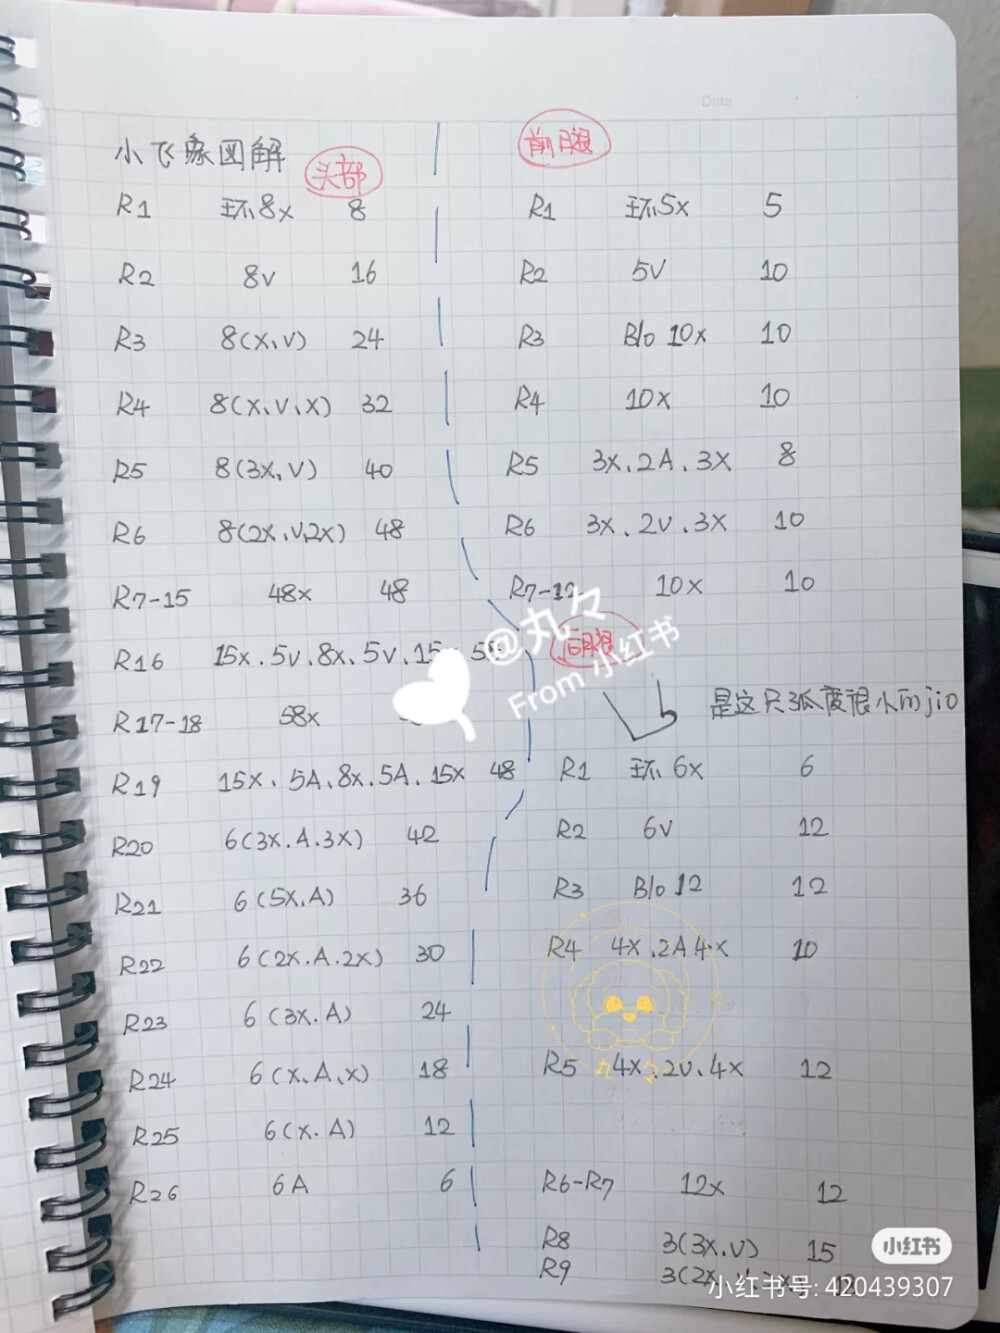 Date
小飞象图解
头部
R1 环8x 8
R2 8v 16
R3 8(x,v) 24
R4 8(x、v、x) 32
R5 8(3x,v) 40
R6 8(2x,v,2x) 48
R7-15 48x 48
R16 15x.5v.8x.5v.15
R17-18 58x
R19 15x、5A、8x.5A.15x 48
R20 6(3x.A.3x) 42
R21 6(5x,A) 36
R22 6(2x.A.2x) 30
R23 6(3x.A) 24
R24 6(x.A.x) 18
R25 6(x.A) 12
R26 6A 6
前腿
R1 环5x 5
R2 5v 10
R3 Blo 10x 10
R4 10x 10
R5 3x.2A.3x 8
R6 3x.2v.3x 10
R7-12 10x 10
后腿
是这只弧度很小的jio
R1 环6x 6
R2 6v 12
R3 Blo 12 12
R4 4x.2A 4x 10
R5 4x.2v.4x 12
R6-R7 12x 12
R8 3(3x.v) 15
R9 3(2x
@丸々
From 小红书
小红书
小红书号: 420439307